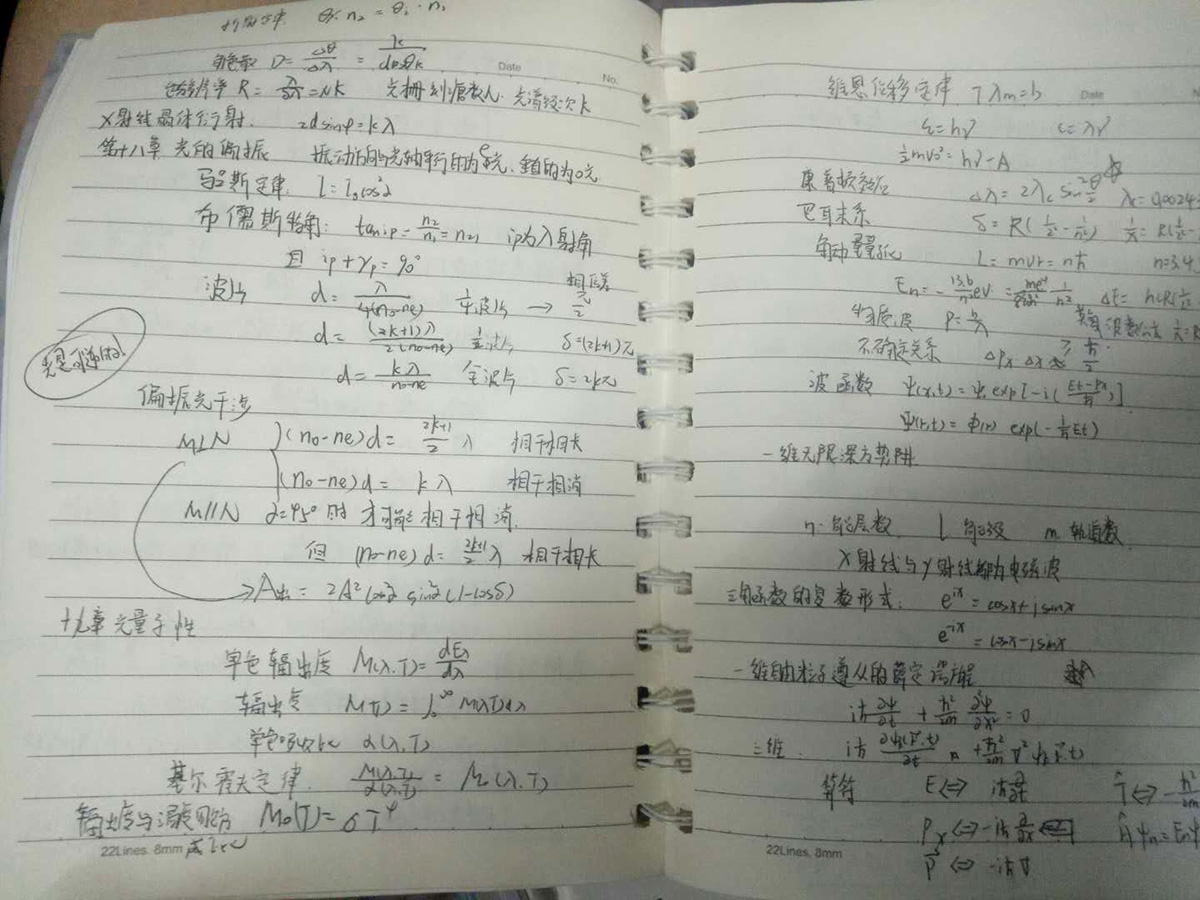 折射定律 θ₁·n₂ = θ₂·n₁
角色散 D = Δθ/Δλ = k/(d cosθk
Date
No.
色分辨率 R = λ/Δλ = Nk 光栅刻痕数N, 光谱级次k
X射线晶体衍射. 2d sinφ = kλ
第十八章 光的偏振 振动方向与光轴平行的为e光, 垂直的为o光
马吕斯定律 I = I₀cos²α
布儒斯特角: tan ip = n₂/n₁ = n₂₁ ip为入射角
且 ip + γp = 90°
波片 d = λ/4(no-ne) 1/4波片 → 相位差 π/2
d = (2k+1)λ/2(no-ne) 1/2波片 δ=(2k+1)π
d = kλ/no-ne 全波片 δ=2kπ
光是可逆的!
偏振光干涉
M⊥N (no-ne)d = 2k+1/2 λ 相干相长
(no-ne)d = kλ 相干相消
M//N α=45°时 才可能相干相消.
但 (no-ne)d = 2k+1/2 λ 相干相长
→A出 = 2A²cos²α sin²α(1-cosδ)
十九章 光量子性
单色辐出度 M(λ,T) = dEλ/dλ
辐出度 M(T) = ∫₀^∞ M(λ,T)dλ
单色吸收比 α(λ,T)
基尔霍夫定律. M(λ,T)/α(λ,T) = M₀(λ,T)
辐出度与温度四次方 M₀(T) = σT⁴
成正比
22Lines, 8mm
维恩位移定律 Tλm = b
Date
No
ε = hγ c = λγ
½mv₀² = hγ - A
康普顿效应 Δλ = 2λc sin²θ/2 λc = 0.0024
巴耳末系 δ = R(1/2² - 1/n²) 1/λ = R(1/2² -
角动量量子化 L = mvr = nħ n=3.4
En = -13.6/n² eV = 1/n² ΔE = hcR(
物质波 P = h/λ
不确定关系 ΔPx Δx ≥ ħ/2
波函数 Ψ(x,t) = Ψ₀ exp[-i(Et-Px/ħ)]
Ψ(r,t) = Φ(r) exp(-i/ħ Et)
一维无限深方势阱
n. 能层数 l 能级 m 轨道数
X射线与γ射线都为电磁波
三角函数的复数形式: e^ix = cosx + i sinx
e^-ix = cosx - i sinx
一维自由粒子遵从的薛定谔方程
iħ ∂ψ/∂t + ħ²/2m ∂²ψ/∂x² = 0
三维. iħ ∂ψ(r,t)/∂t + ħ²/2m ∇²ψ(r,t)
算符 E ⇔ iħ ∂/∂t T̂ ⇔ -ħ²/2m
Px ⇔ -iħ ∂/∂x Ĥψn = Enψ
P⃗ ⇔ -iħ∇
22Lines, 8mm